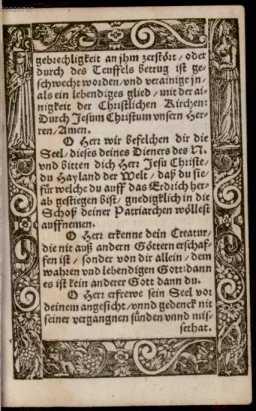 gebrechligkeit an jhm zerstört / oder
durch des Teuffels betrug ist ge-
schwecht worden / vnd verainige jn
als ein lebendiges glied / mit der ai-
nigkeit der Christlichen Kirchen:
Durch Jesum Christum vnsern Her-
ren / Amen.
O Herr wir befelchen dir die
Seel / dieses deines Dieners des N.
vnd bitten dich Herr Jesu Christe /
du Hayland der Welt / daß du sie /
für welche du auff das Erdrich her-
ab gestiegen bist / gnediglich in die
Schoß deiner Patriarchen wöllest
auffnemen.
O Herr erkenne dein Creatur /
die nit auß andern Göttern erschaf-
fen ist / sonder von dir allein / dem
wahren vnd lebendigen Gott: dann
es ist kein anderer Gott dann du.
O Herr erfrewe sein Seel vor
deinem angesicht / vnnd gedenck nit
seiner vergangnen sünden vnnd mis-
sethat.